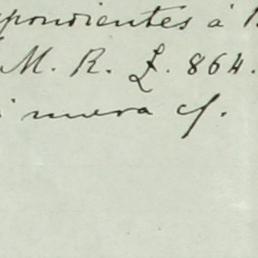 spondientes á
M. R. £. 864.
i nueva cf.